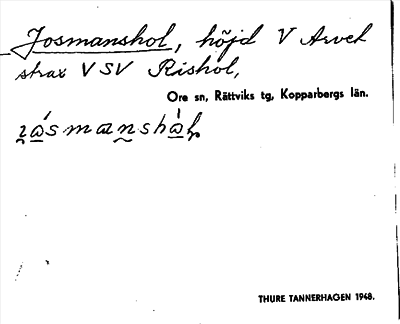 Josmanshol, höjd V Arvet
strax VSV Rishol,
Ore sn, Rättviks tg, Kopparbergs län.
THURE TANNERHAGEN 1948.